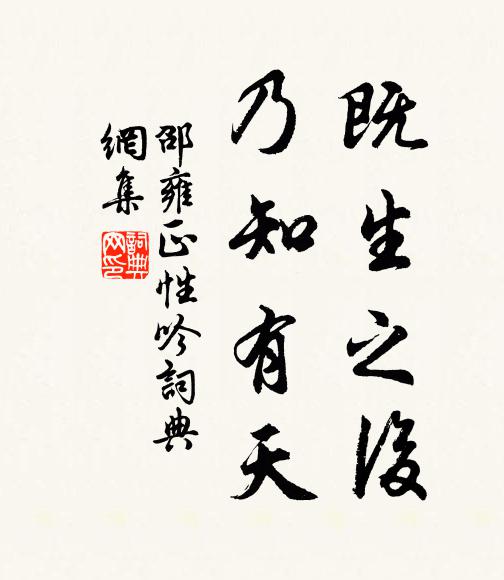 既生之後
乃知有天
邵雍正性吟詞典
網集
詞典
网印